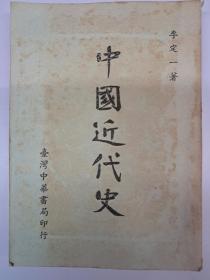 李定一著
中國近代史
臺灣中華書局印行